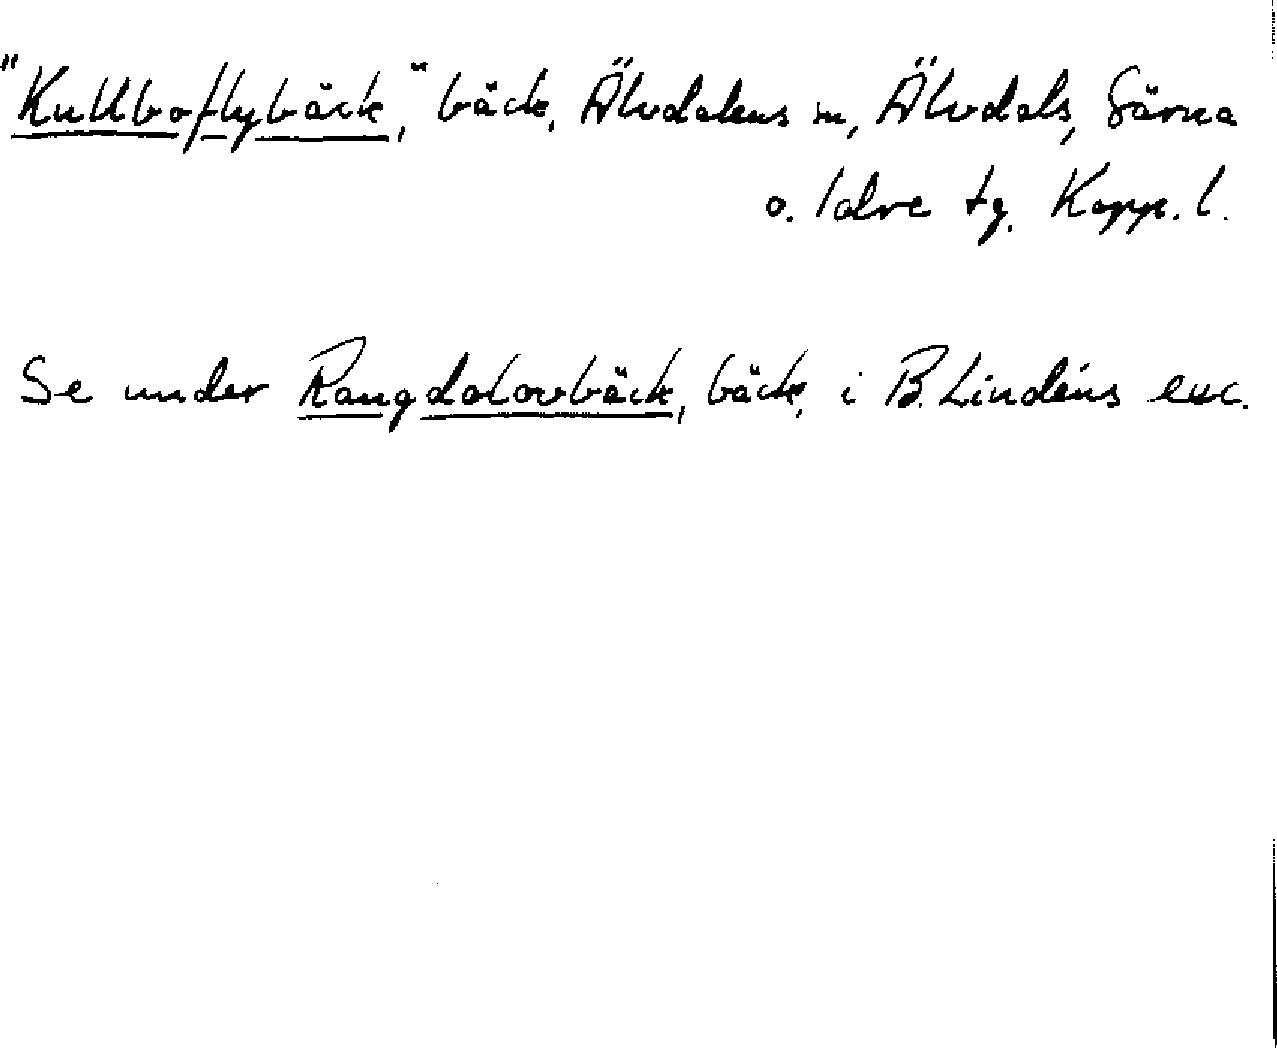 "Kullboflybäck," bäck, Älvdalens sn, Älvdals, Särna
o. Idre tg. Kopp. l.
Se under Rangdalovbäck, bäck, i B. Lindéns exc.